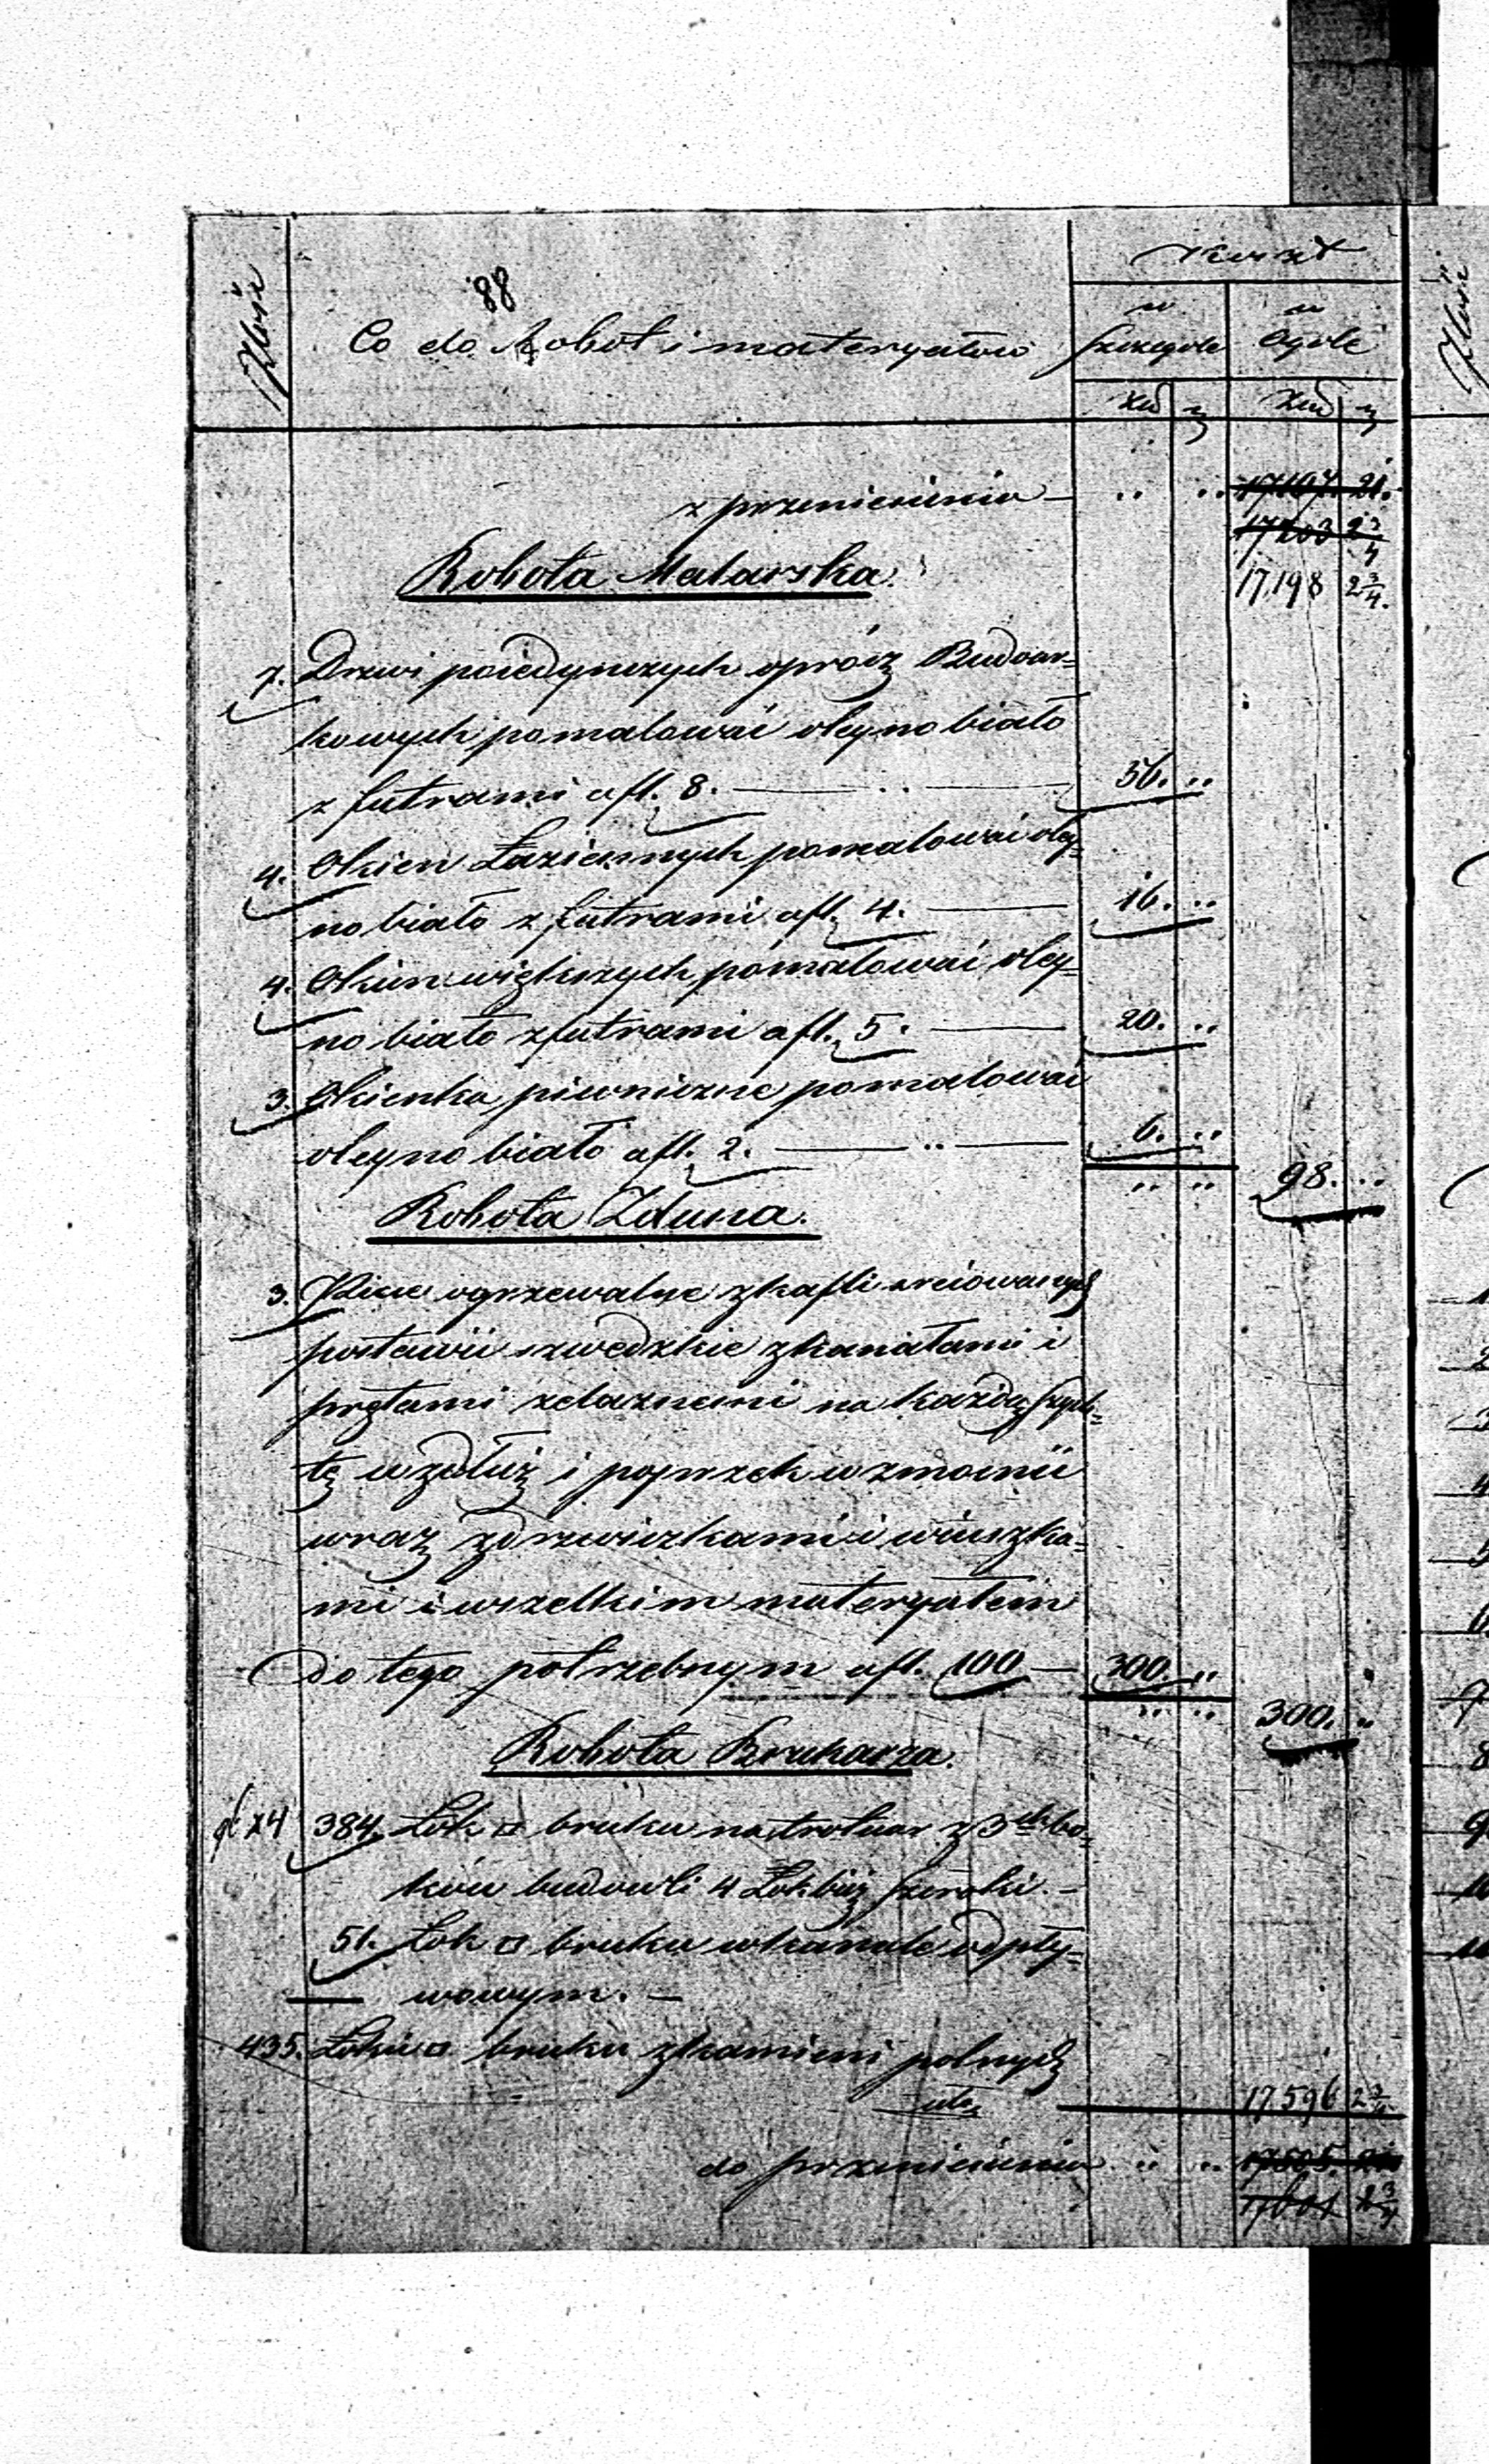 88
Ilość
Co do Robot i materyałow
Koszt
w Szczegole
w Ogole
z przeniesienia — 17,198 2 3/4.
Robota Malarska.
7. Drzwi poiedynczych oprócz Budoar=
kowych pomalować oleyno biało
z futrami afl. 8. — 56. "
4. Okien Łaziennych pomalować oley=
no biało z futrami afl. 4. — 16. "
4. Okien większych pomalować oley=
no biało z futrami afl. 5. — 20. "
3. Okienka piwniczne pomalować
oleyno biało afl. 2. — 6. "
98. "
Robota Zduna.
3. Piece ogrzewalne z kafli
postawić szwedzkie z kanałami i
prętami żelaznemi na każdą szych=
tę wzdłuż i poprzek wzmocnić
wraz z drzwiczkami i wiuszka=
mi i wszelkim materyałem
do tego potrzebnym afl. 100 — 300. "
300. "
Robota Brukarza.
384. Łok □ bruku na trotuar z 3ch bo=
ków budowli 4 Łokcie szeroki. —
51. Łok □ bruku w kanale odpły=
wowym. —
435. Łokci □ bruku z kamieni polnych
17596 2 3/4
do przeniesienia